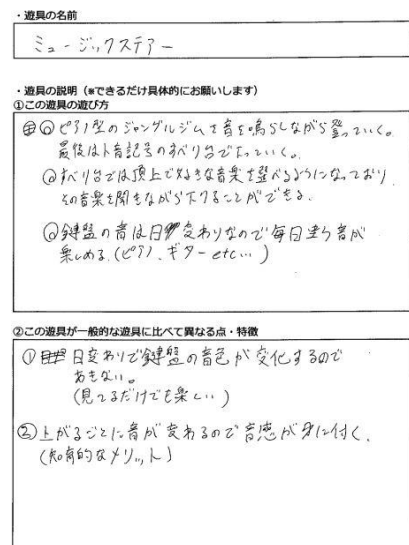 ・遊具の名前
ミュージックステアー
・遊具の説明（※できるだけ具体的にお願いします）
①この遊具の遊び方
◎ピアノ型のジャングルジムを音を鳴らしながら登っていく。
最後はト音記号のすべり台で下っていく。
◎すべり台では頂上で好きな音楽を選べるようになっており
その音楽を聞きながら下りることができる。
◎鍵盤の音は日変わりなので毎日違う音が
楽しめる.(ピアノ、ギター etc…)
②この遊具が一般的な遊具に比べて異なる点・特徴
① 日変わりで鍵盤の音色が変化するので
あきない。
(見てるだけでも楽しい)
② 上がるごとに音が変わるので音感が身に付く.
(知育的なメリット)